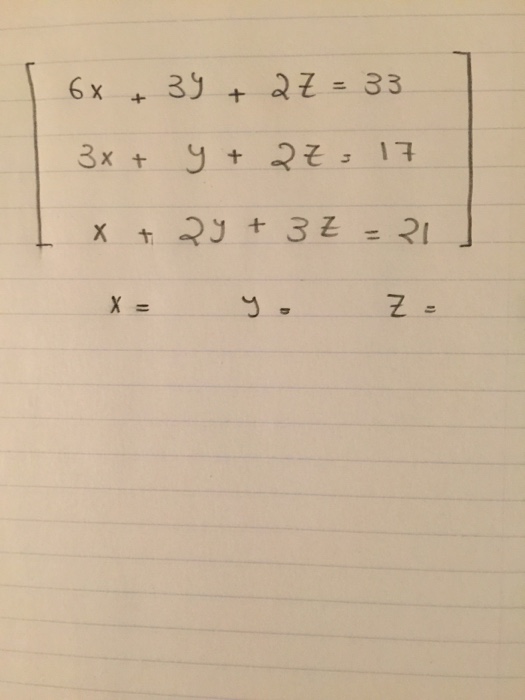 6x + 3y + 2z = 33
3x + y + 2z = 17
x + 2y + 3z = 21
x = y = z =